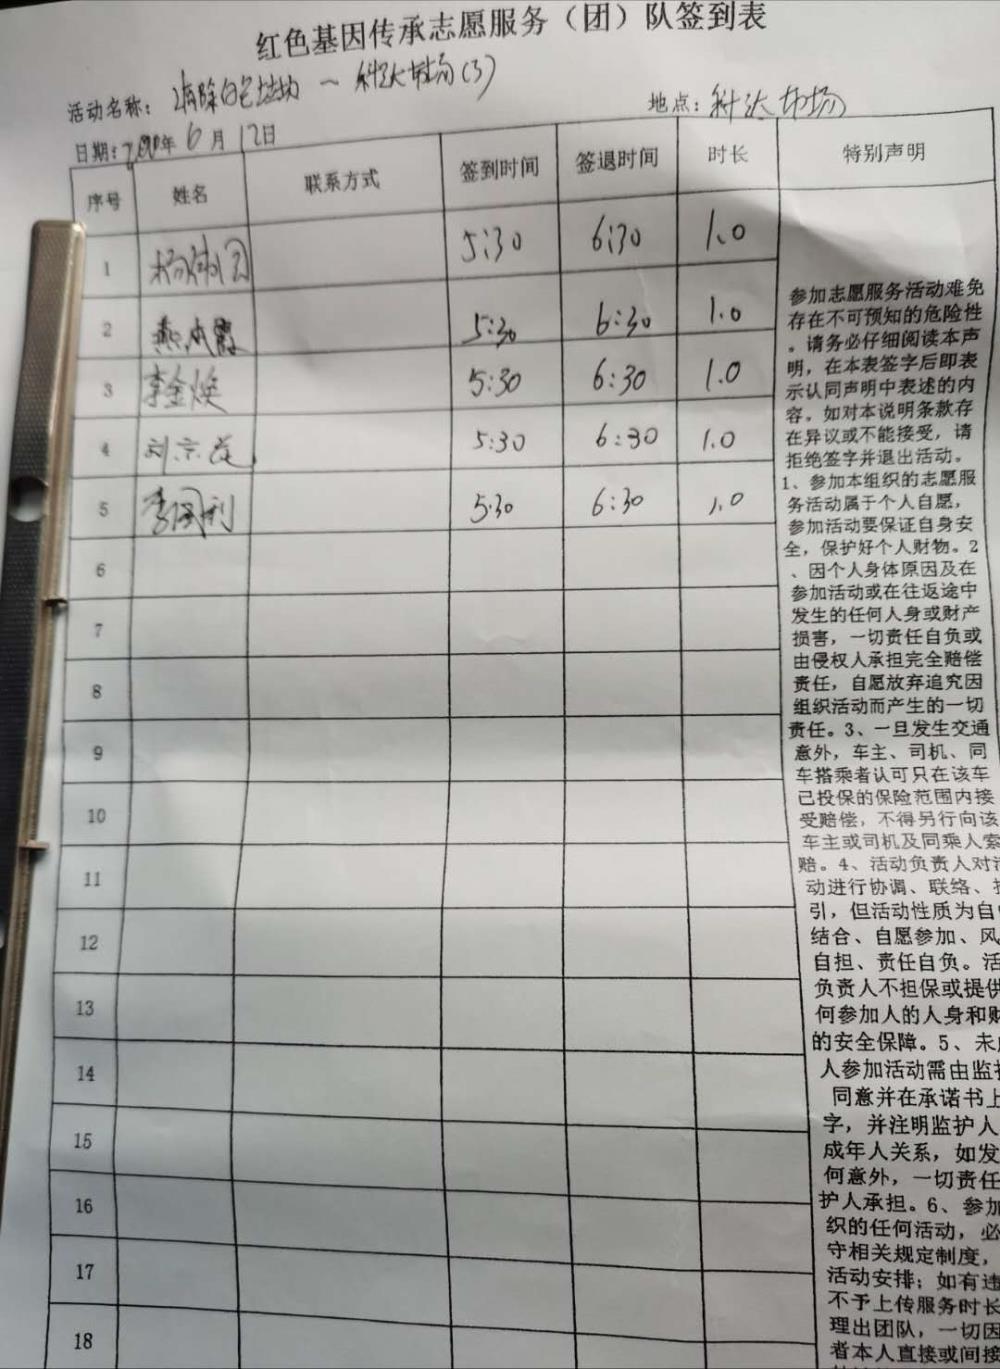 红色基因传承志愿服务（团）队签到表
活动名称：清除白色垃圾 — 科达市场(3)
地点：科达市场
日期：2020年6月12日
序号 姓名 联系方式 签到时间 签退时间 时长 特别声明
1 5:30 6:30 1.0
2 5:30 6:30 1.0
3 李金焕 5:30 6:30 1.0
4 5:30 6:30 1.0
5 5:30 6:30 1.0
6
7
8
9
10
11
12
13
14
15
16
17
18
参加志愿服务活动难免
存在不可预知的危险性
。请务必仔细阅读本声
明，在本表签字后即表
示认同声明中表述的内
容。如对本说明条款存
在异议或不能接受，请
拒绝签字并退出活动。
1、参加本组织的志愿服
务活动属于个人自愿，
参加活动要保证自身安
全，保护好个人财物。2
、因个人身体原因及在
参加活动或在往返途中
发生的任何人身或财产
损害，一切责任自负或
由侵权人承担完全赔偿
责任，自愿放弃追究因
组织活动而产生的一切
责任。3、一旦发生交通
意外，车主、司机、同
车搭乘者认可只在该车
已投保的保险范围内接
受赔偿，不得另行向该
车主或司机及同乘人索
赔。4、活动负责人对活
动进行协调、联络、
引，但活动性质为自
结合、自愿参加、风
自担、责任自负。活
负责人不担保或提供
何参加人的人身和财
的安全保障。5、未
人参加活动需由监
同意并在承诺书上
字，并注明监护人
成年人关系，如发
何意外，一切责任
护人承担。6、参加
织的任何活动，必
守相关规定制度，
活动安排；如有违
不予上传服务时长
理出团队，一切因
者本人直接或间接